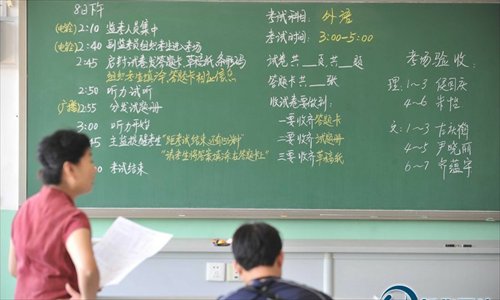 8日下午
(电铃) 2:10 监考人员集中
(电铃) 2:40 副监考员组织考生进入考场
2:45 启封试卷袋答题卡 草稿纸、条形码
组织考生填涂答题卡相应信息
2:50 听力试听
(广播) 2:55 分发试题册
3:00 听力开始
:45 主监提醒考生"距考试结束还有15分钟"
"请考生将答案填涂在答题卡上"
:00 考试结束
考试科目: 外语
考试时间: 3:00-5:00
试卷共 页共 题
答题卡共 张
收试卷要做到:
一要收齐答题卡
二要收齐试题册
三要收齐草稿纸
考场验收:
理: 1~3 
4~6 
文: 1~3 
4~5 尹晓丽
6~7 乔蕴宇